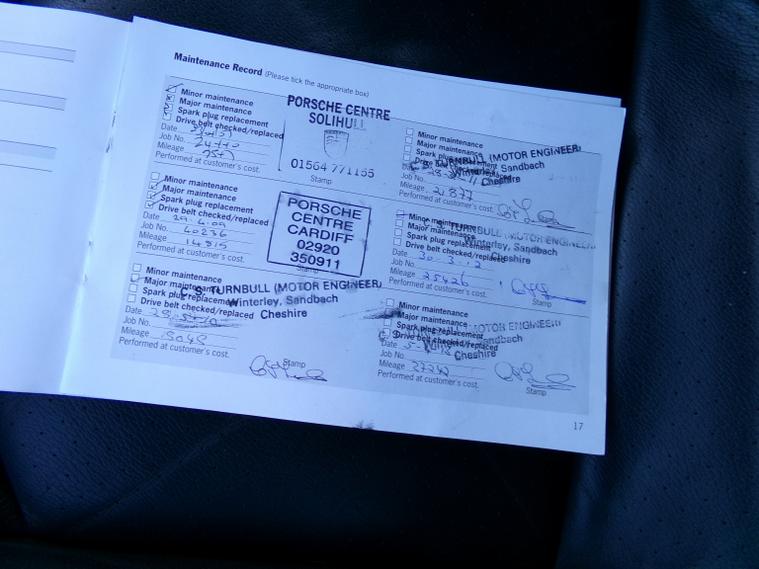 Maintenance Record (Please tick the appropriate box)
Minor maintenance
Major maintenance
Spark plug replacement
Drive belt checked/replaced
Date
Job No.
Mileage
Performed at customer's cost.
PORSCHE CENTRE
SOLIHULL
01564 771155
Stamp
Minor maintenance
Major maintenance
Spark plug replacement
Drive belt checked/replaced
Date 29.4.09
Job No. 40236
Mileage 14815
Performed at customer's cost.
PORSCHE
CENTRE
CARDIFF
02920
350911
Stamp
Minor maintenance
Major maintenance
Spark plug replacement
Drive belt checked/replaced
Date
Job No.
Mileage
Performed at customer's cost.
C. S. TURNBULL (MOTOR ENGINEER)
Winterley, Sandbach
Cheshire
Stamp
Minor maintenance
Major maintenance
Spark plug
Drive belt
Job No.
Mileage 21877
Performed at customer's cost.
TURNBULL (MOTOR ENGINEER)
Winterley, Sandbach
Cheshire
Minor maintenance
Major maintenance
Spark plug replacement
Drive belt checked/replaced
Date
Job No.
Mileage 25426
Performed at customer's cost.
S. TURNBULL (MOTOR ENGINEER)
Winterley, Sandbach
Cheshire
Stamp
Minor maintenance
Major maintenance
Spark plug replacement
Drive belt checked/replaced
Date
Job No.
Mileage 27242
Performed at customer's cost.
MOTOR ENGINEER)
Cheshire
Stamp
17